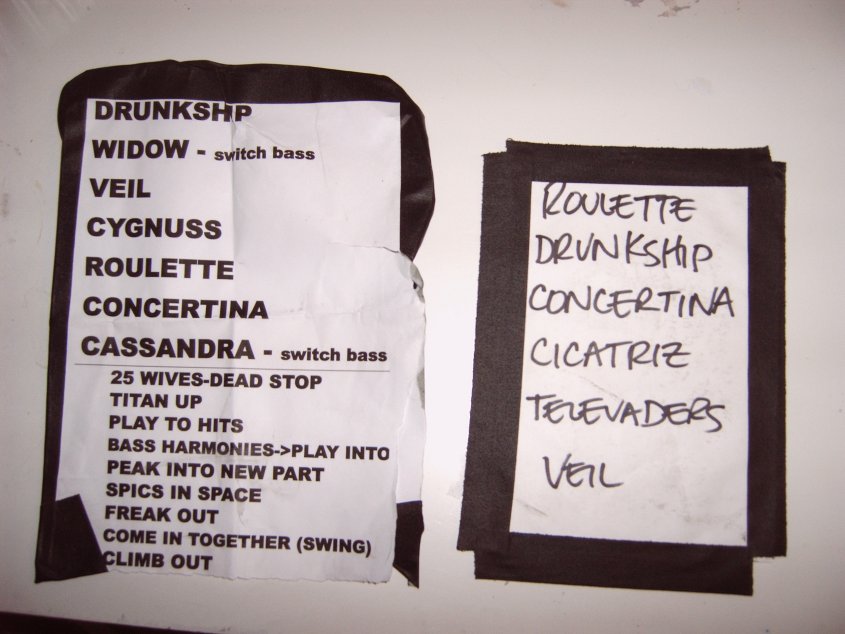 DRUNKSHIP
WIDOW - switch bass
VEIL
CYGNUSS
ROULETTE
CONCERTINA
CASSANDRA - switch bass
25 WIVES-DEAD STOP
TITAN UP
PLAY TO HITS
BASS HARMONIES->PLAY INTO
PEAK INTO NEW PART
SPICS IN SPACE
FREAK OUT
COME IN TOGETHER (SWING)
CLIMB OUT
ROULETTE
DRUNKSHIP
CONCERTINA
CICATRIZ
TELEVADERS
VEIL